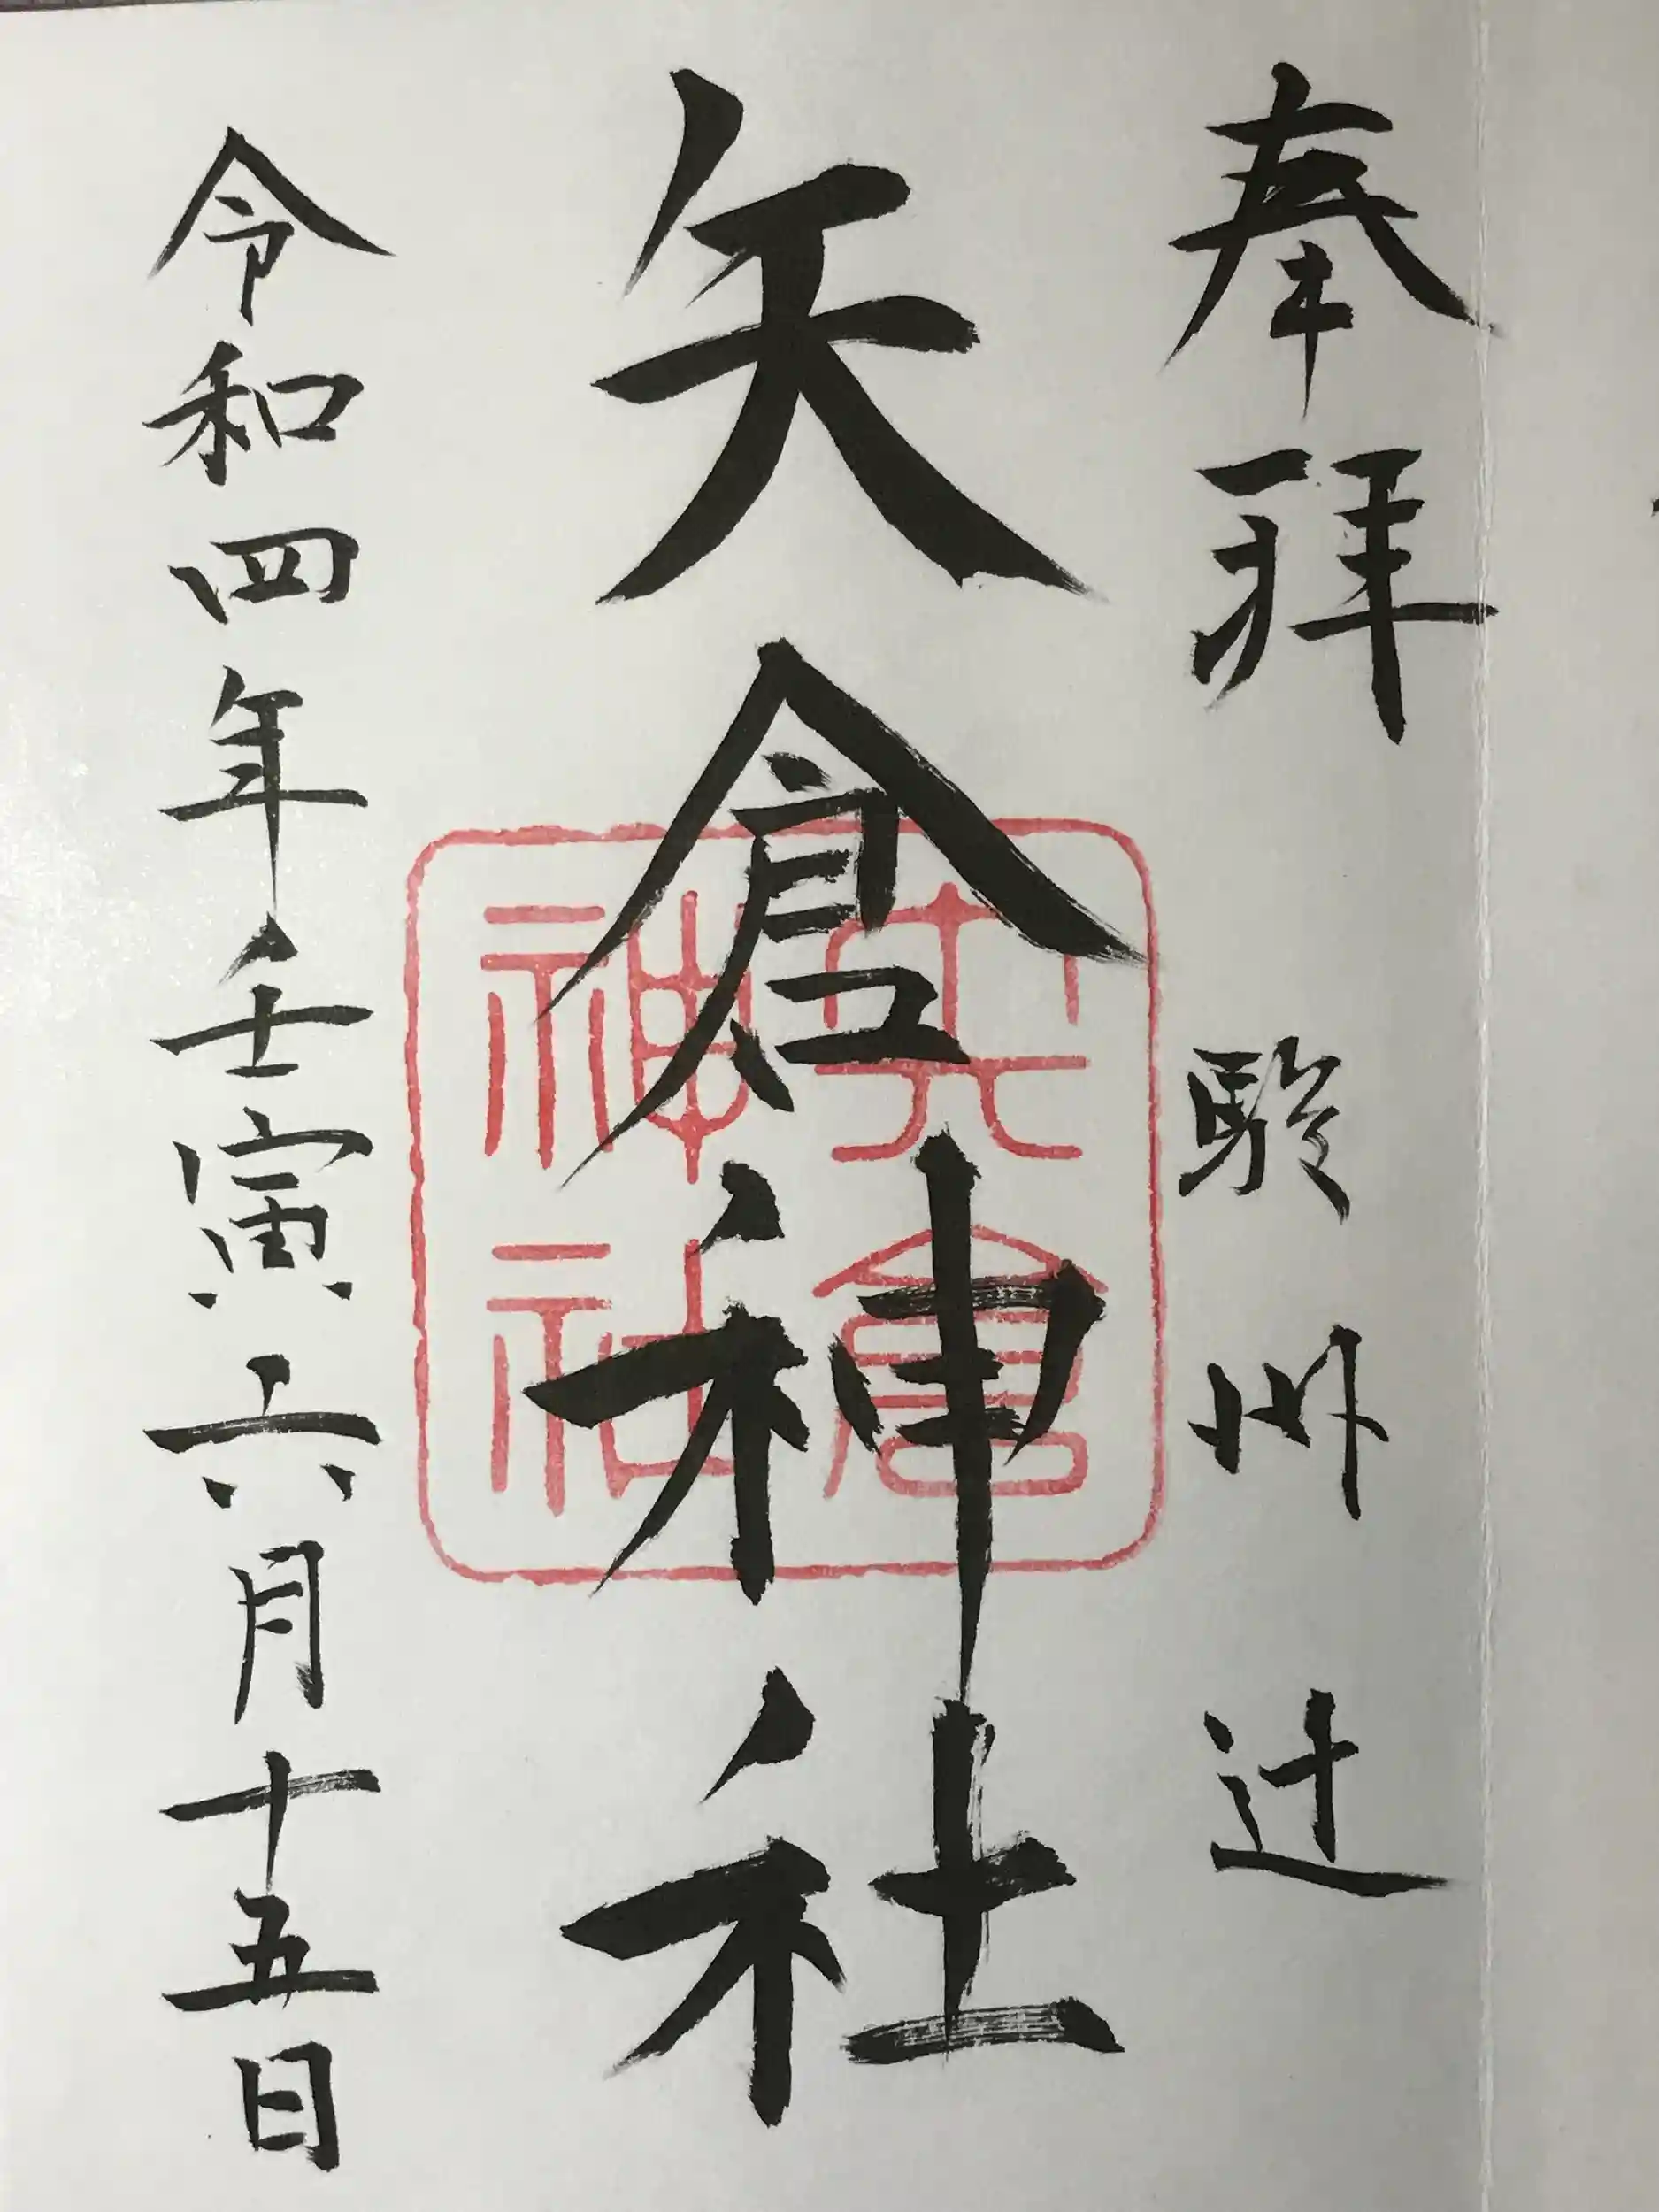 奉拜 駿州辻
矢倉神社
矢倉神社
令和四年壬寅六月十五日